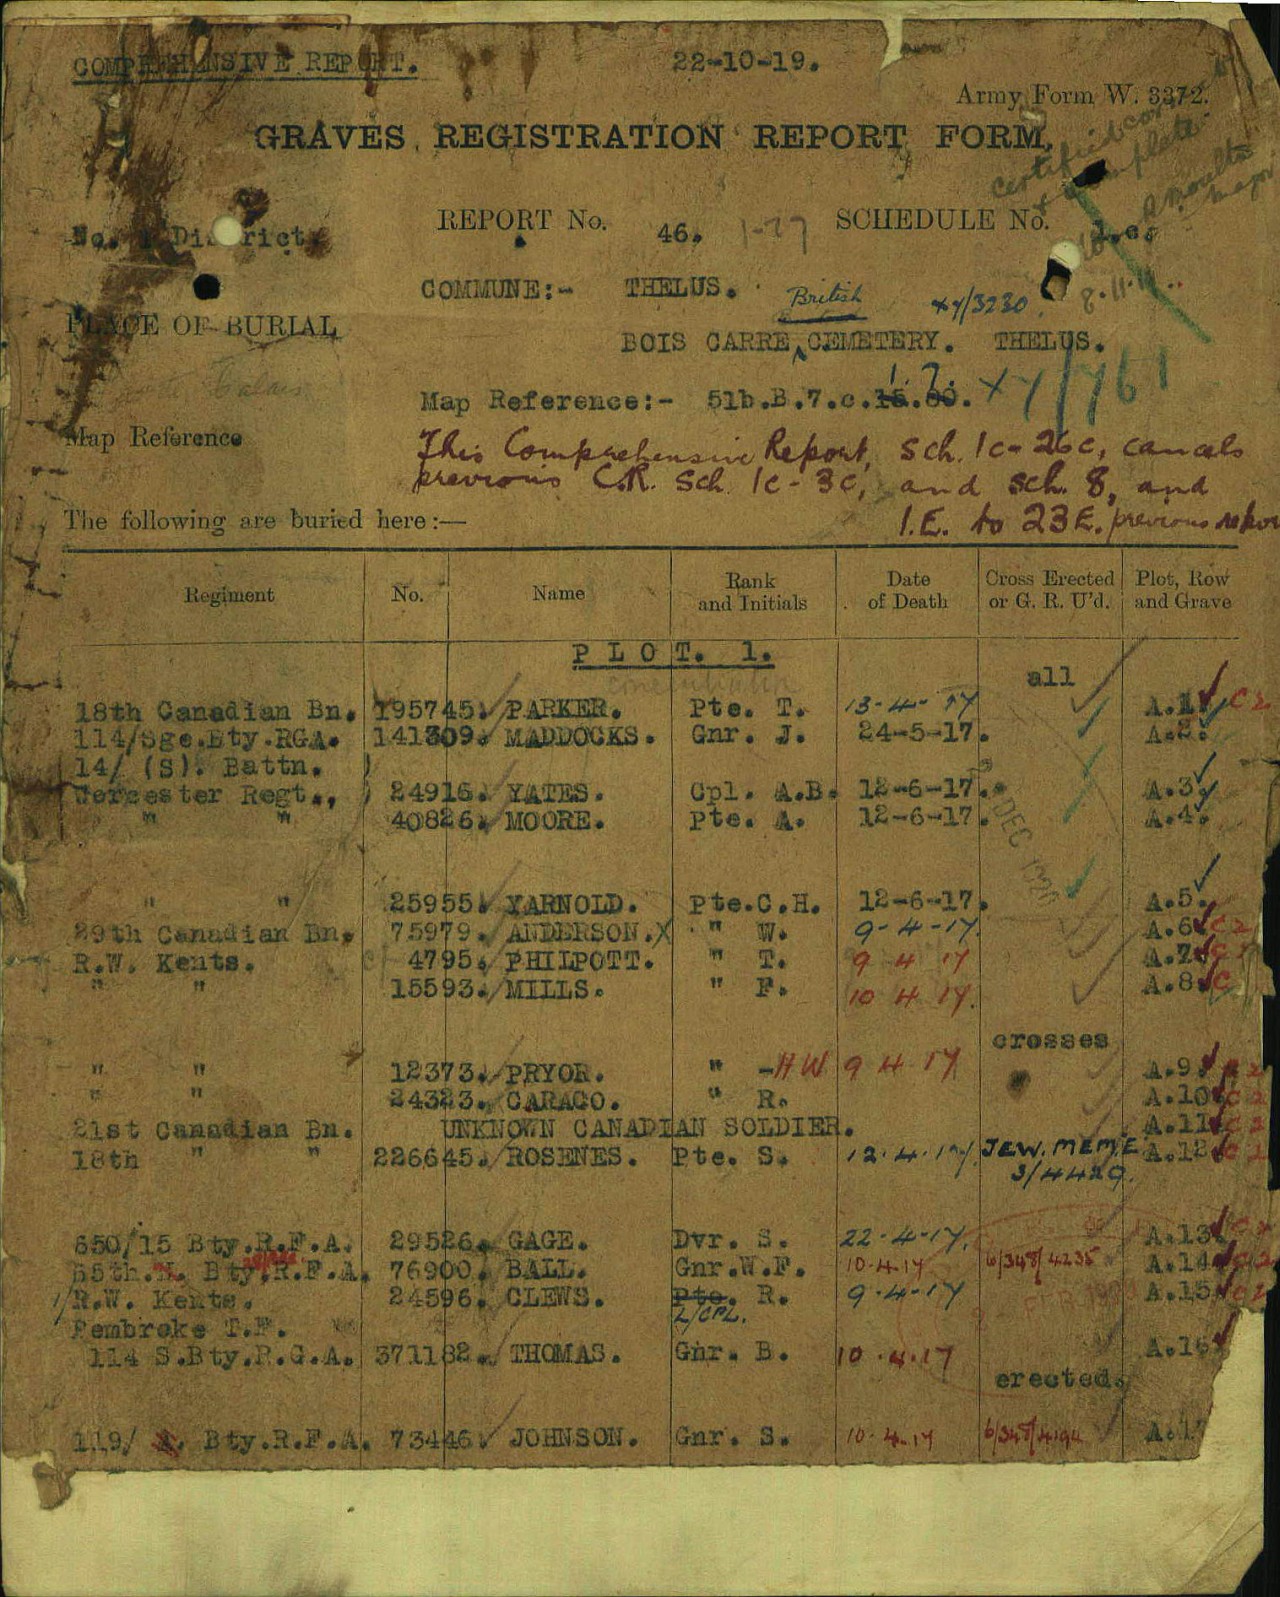 COMPREHENSIVE REPORT. 22-10-19.
Army Form W. 3372.
GRAVES REGISTRATION REPORT FORM.
certified correct
& complete
REPORT No. 46. 1-77 SCHEDULE No. 1.c.
No. 1 District
8.11.
COMMUNE:- THELUS. British xy/3230.
PLACE OF BURIAL
BOIS CARRE CEMETERY. THELUS.
1. 7. xy/761
Map Reference:- 51b.B.7.c.15.80.
Map Reference
This Comprehensive Report, Sch. 1c-26c, cancels
previous C.R. Sch. 1c-3c, and Sch. 8, and
1.E. to 23E. previous
The following are buried here:—
Regiment No. Name Rank and Initials Date of Death Cross Erected or G. R. U'd. Plot, Row and Grave
PLOT. 1.
concentration
all
18th Canadian Bn. 195745. PARKER. Pte. T. 13-4-17 A.1. C2
114/Sge.Bty.RGA. 141309. MADDOCKS. Gnr. J. 24-5-17. A.2.
14/ (S). Battn. )
Worcester Regt., ) 24916. YATES. Cpl. A.B. 12-6-17. A.3.
" " 40826. MOORE. Pte. A. 12-6-17. A.4.
DEC 1920
" " 25955. YARNOLD. Pte.C.H. 12-6-17. A.5.
29th Canadian Bn. 75979. ANDERSON.X " W. 9-4-17. A.6. C2
R.W. Kents. 4795. PHILPOTT. " T. 9 4 17 A.7. C
" " 15593. MILLS. " F. 10 4 17. A.8. C
crosses
" " 12373. PRYOR. " -HW 9 4 17 A.9. C2
" " 24323. CARAGO. " R. A.10. C2
21st Canadian Bn. UNKNOWN CANADIAN SOLDIER. A.11. C2
18th " " 226645. ROSENES. Pte. S. 12.4.17. JEW. MEM:E A.12. C2
3/4429.
650/15 Bty.R.F.A. 29526. GAGE. Dvr. S. 22-4-17. A.13. C2
55th. Bty.R.F.A. 76900. BALL. Gnr.W.F. 10.4.17 6/348/4235 A.14. C2
1/R.W. Kents. 24596. CLEWS. Pte. R. 9-4-17 A.15. C2
L/CPL.
Pembroke T.F.
114 S.Bty.R.G.A. 371182. THOMAS. Gnr. B. 10.4.17 A.16.
erected.
119/ Bty.R.F.A. 73446. JOHNSON. Gnr. S. 10.4.17 A.1